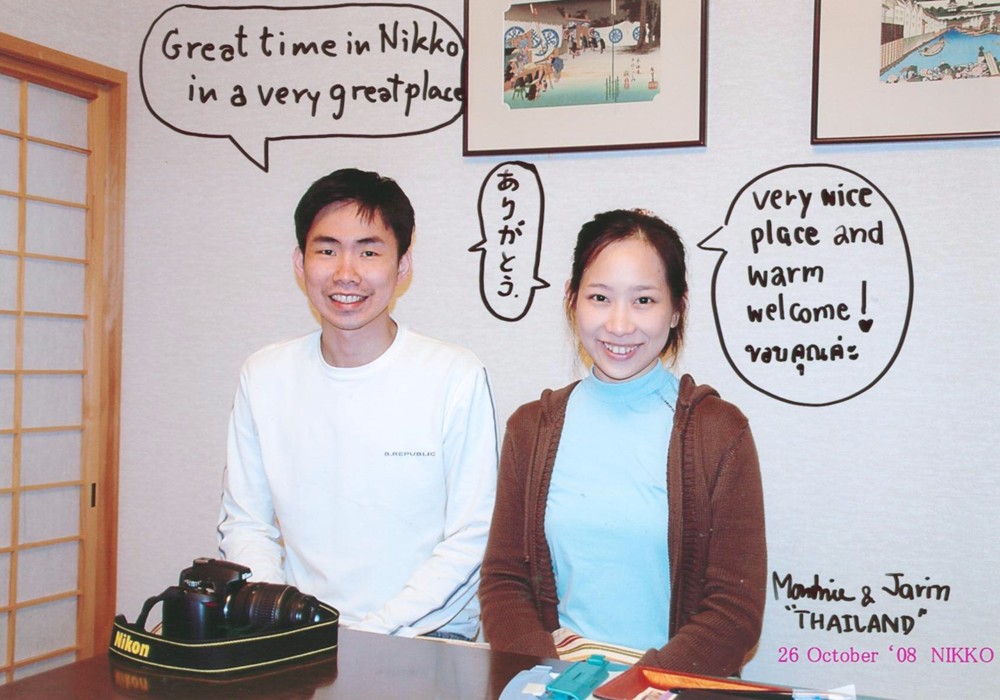 Great time in Nikko
in a very great place
ありがとう.
very nice
place and
warm
welcome!
ขอบคุณค่ะ
B.REPUBLIC
Nikon
& Jarin
"THAILAND"
26 October '08 NIKKO